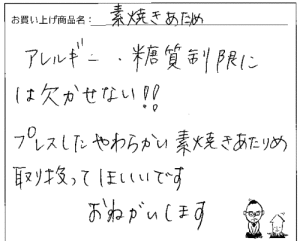 お買い上げ商品名： 素焼きあため
アレルギー・糖質制限に
は欠かせない!!
プレスしたやわらかい素焼きあたりめ
取り扱ってほしいです
おねがいします